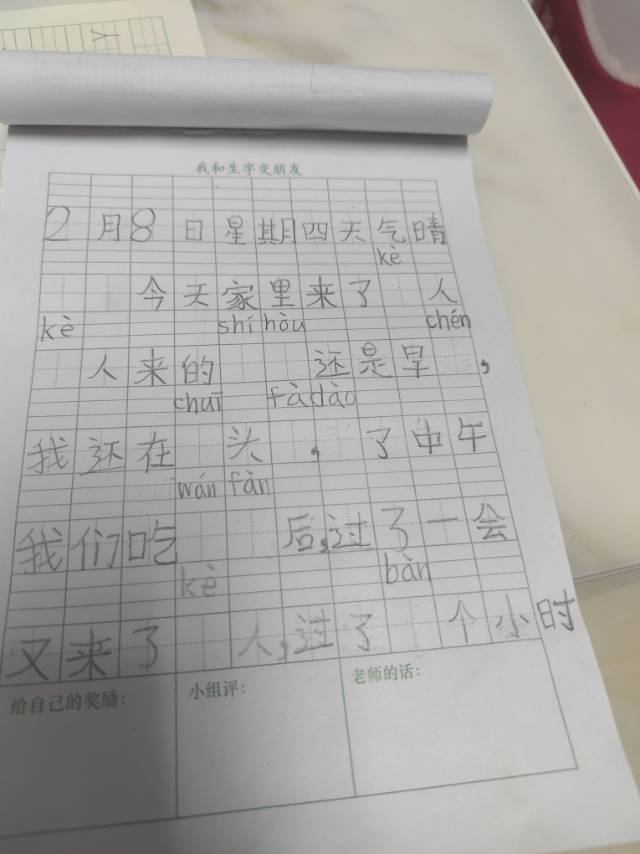 我和生字交朋友
2月8日星期四天气晴
kè
今天家里来了 人
kè shí hòu chén
人来的 还是早 ,
chuī fà dào
我还在 头 , 了中午
wán fàn
我们吃 后,过了一会
kè bàn
又来了 人,过了 个小时
给自己的奖励: 小组评: 老师的话: